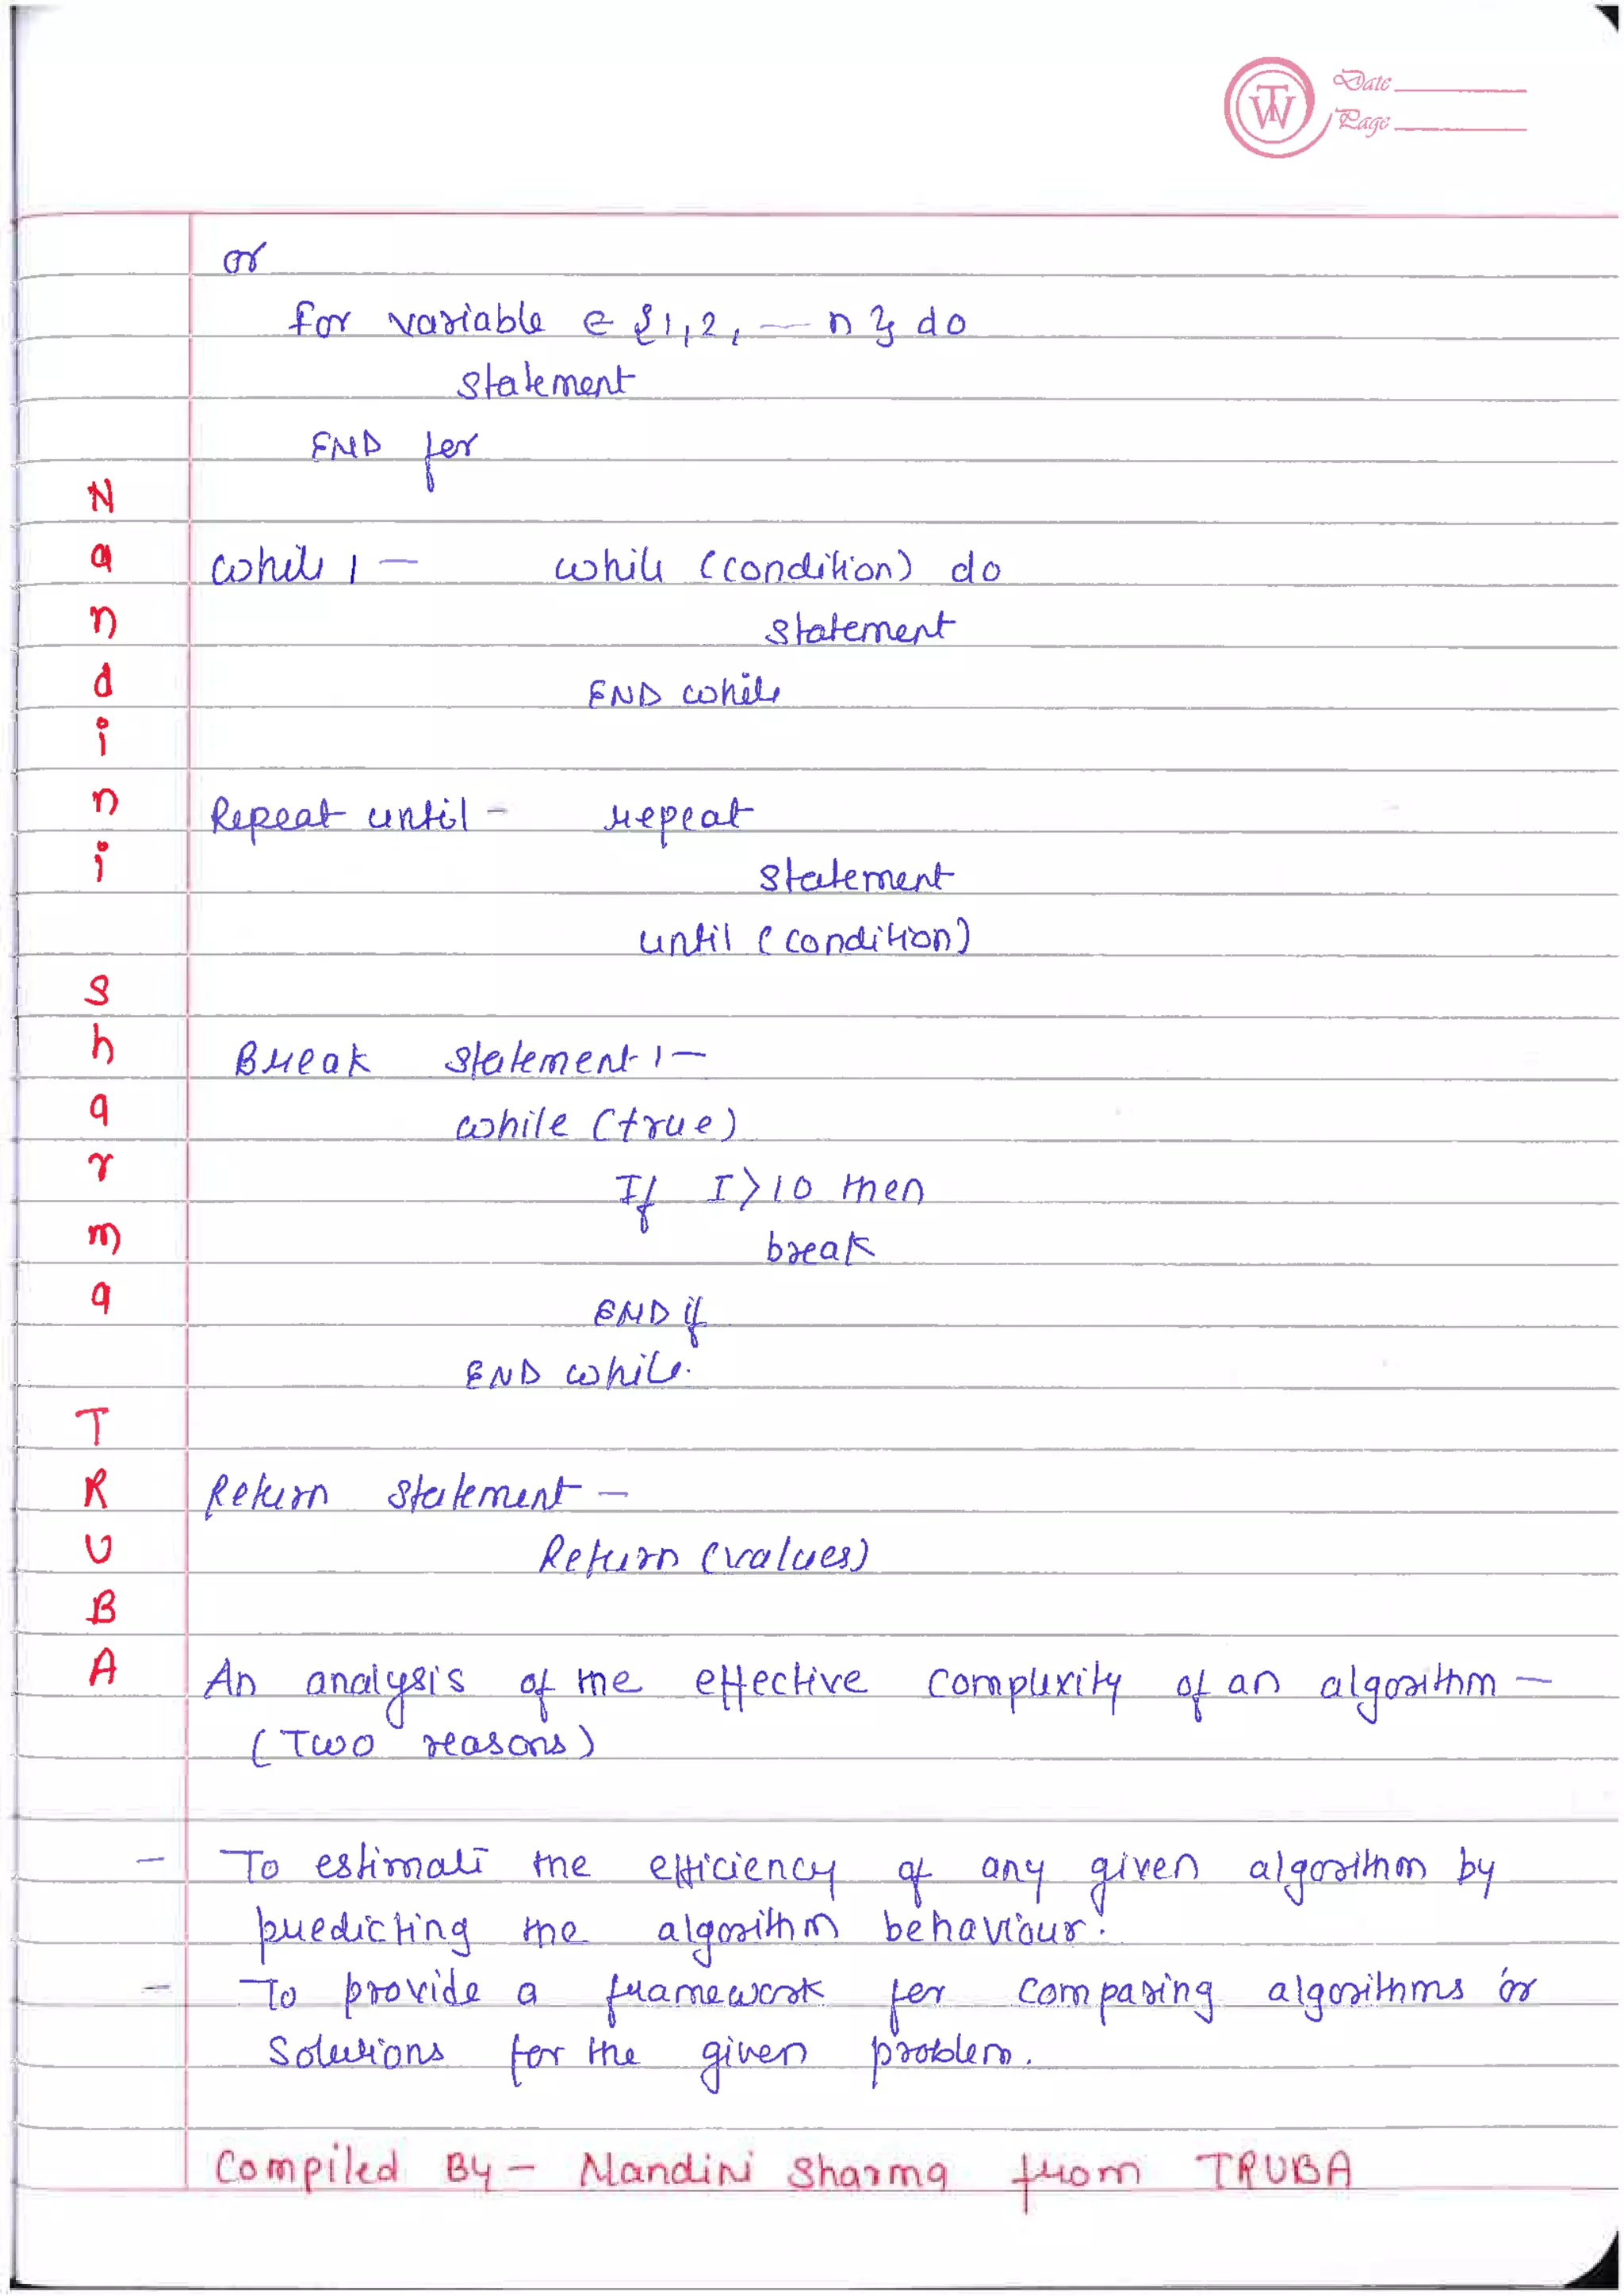 TW Date
Page
or
for variable ∈ {1,2, — n} do
statement
END for
while :— while (condition) do
statement
END while
Repeat until - repeat
statement
until (condition)
Break statement :—
while (true)
If I>10 then
break
END if
END while.
Return statement —
Return (values)
An analysis of the effective complexity of an algorithm —
(Two reasons)
— To estimate the efficiency of any given algorithm by
predicting the algorithm behaviour.
— To provide a framework for comparing algorithms or
solutions for the given problem.
Compiled By — Nandini Sharma from TRUBA
Nandini Sharma TRUBA